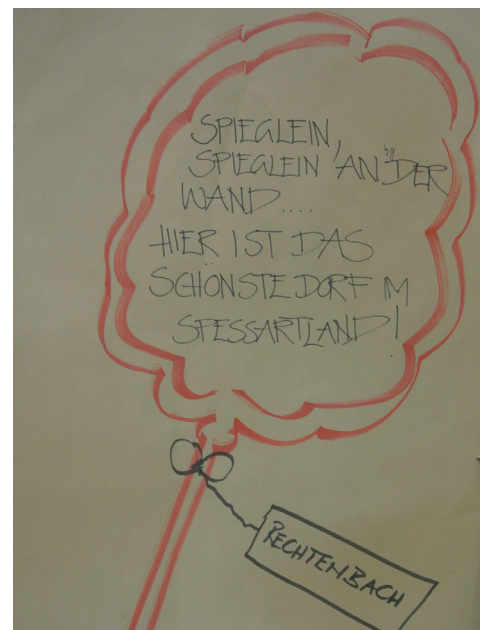 SPIEGLEIN,
SPIEGLEIN "AN" DER
WAND....
HIER IST DAS
SCHÖNSTE DORF IM
SPESSARTLAND!
RECHTENBACH